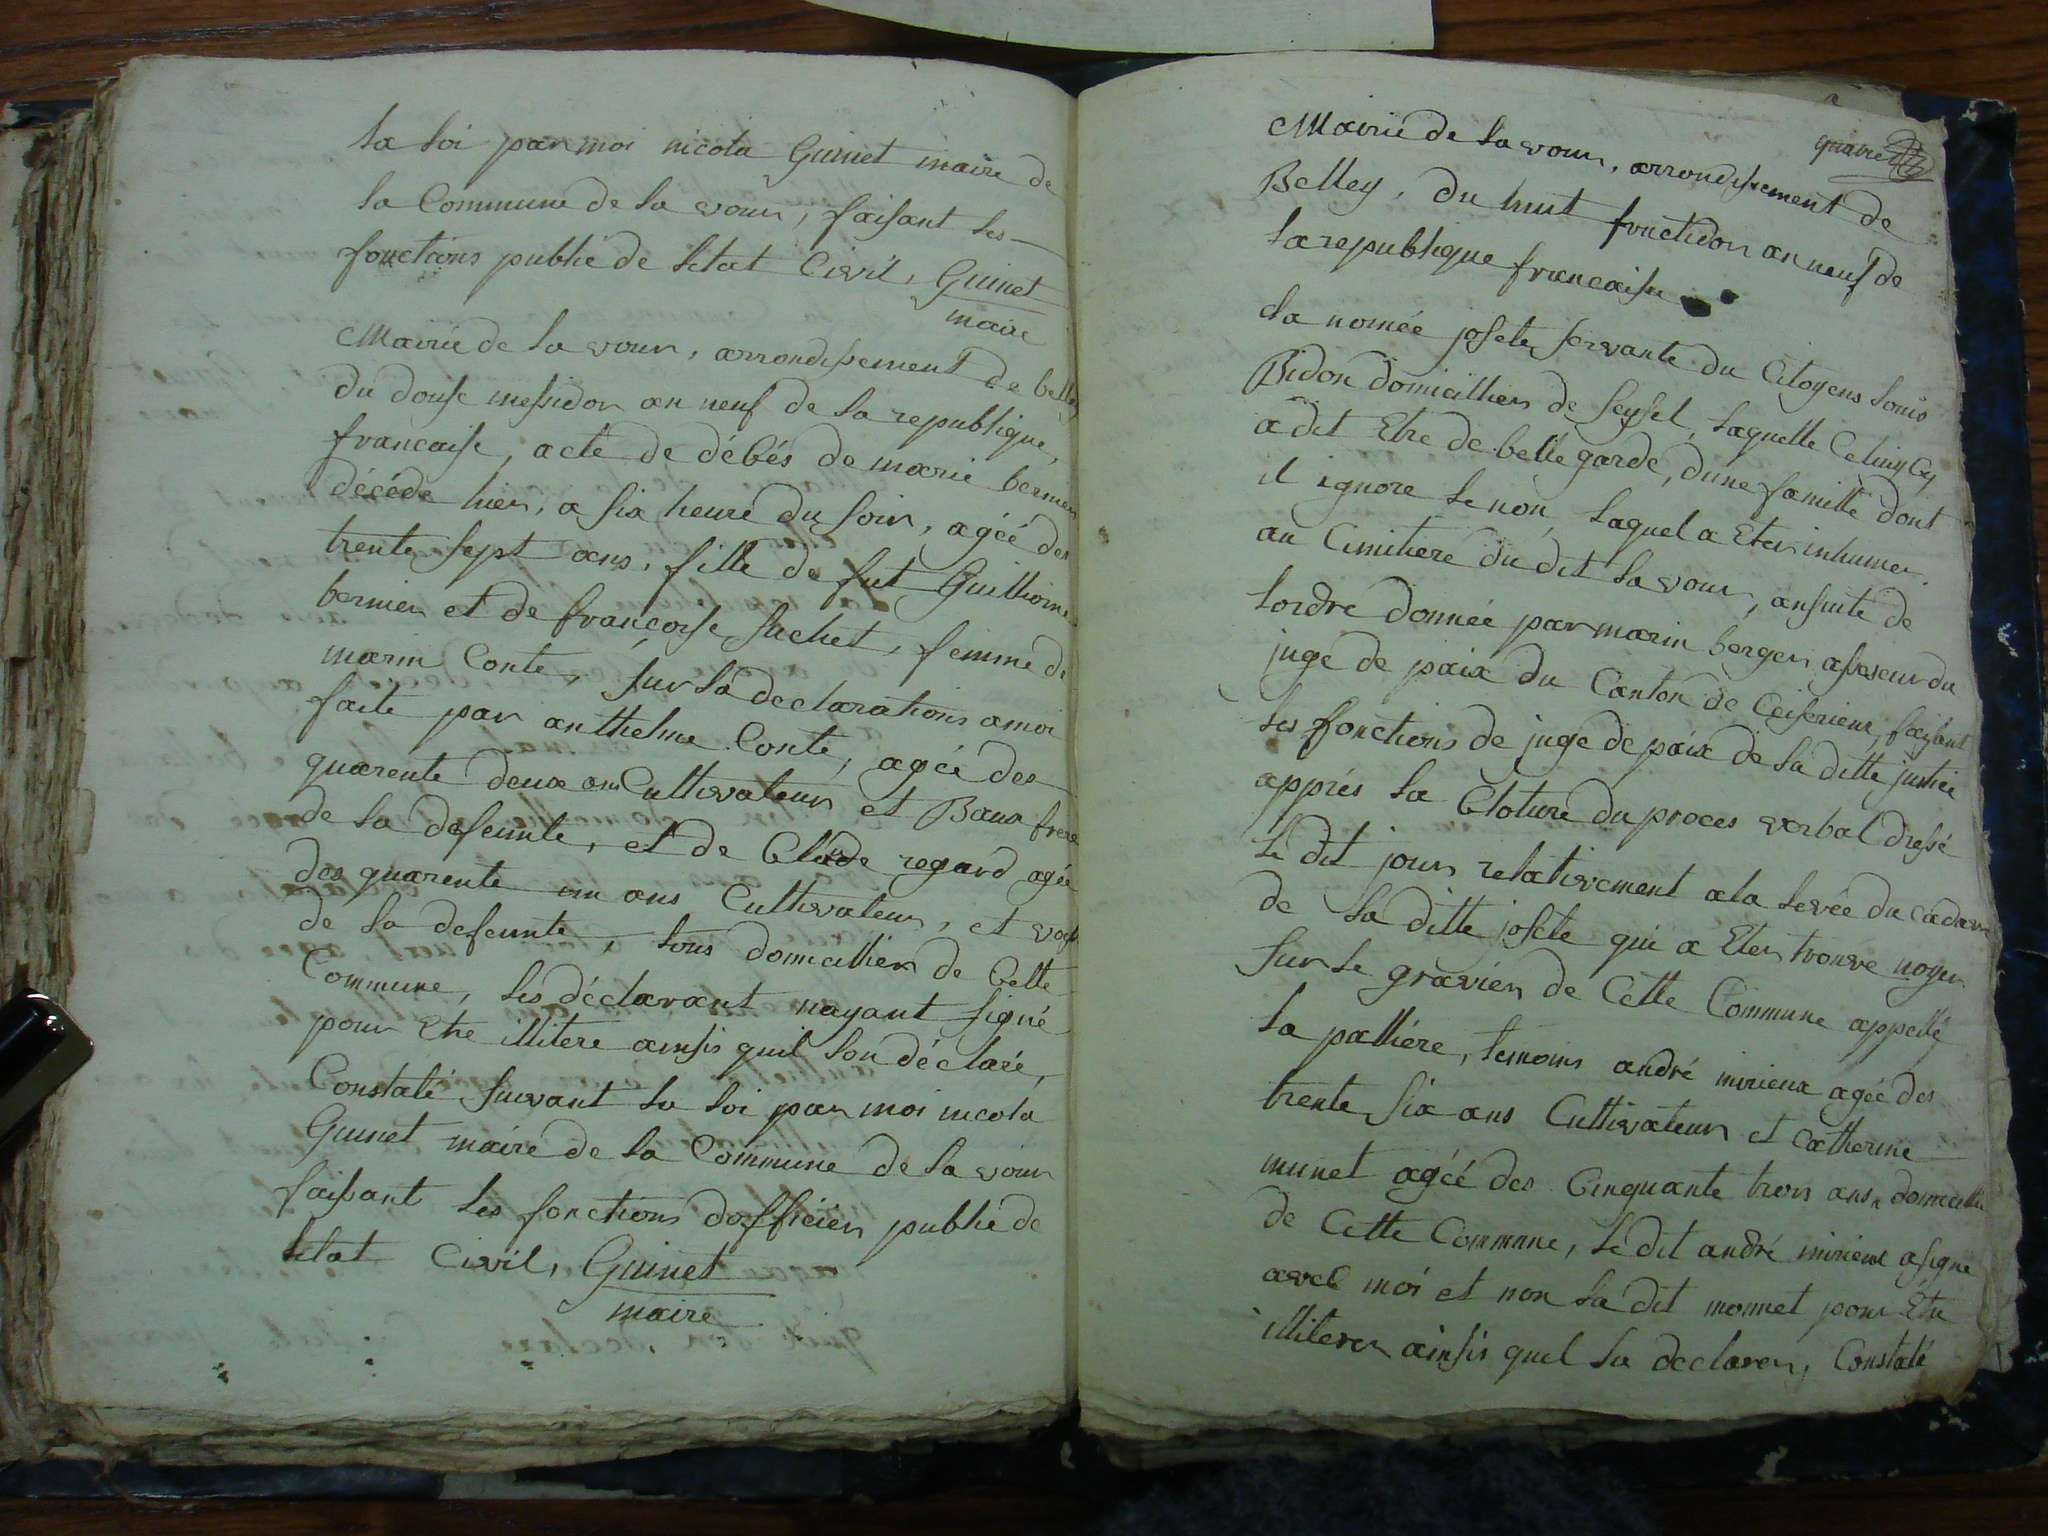 la loi par moi nicola Guinet maire de
la Commune de la vour, faisant les
fonctions publié de letat Civil, Guinet
maire
Mairie de la vour, arrondissement de belley
du douse messidor an neuf de la republique,
francaise, acte de décés de marie bernier
décéde hier, a six heure du soir, agéé des
trente sept ans, fille de fut Guilliome
bernier et de françoise suchet, femme de
marin Conte, sur la declarations a moi
faite par anthelme Conte, agéé des
quarente deux ans Cultivateur et Baux frere
de la defeunte, et de Clode regard agéé
des quarente un ans Cultivateur, et
de la defeunte, tous domicillier de Cette
Commune, les déclarant nayant signé
pour Etre illitere ainsis quil lon déclaré,
Constaté suivant la loi par moi nicola
Guinet maire de la Commune de la vour
faissant les fonctions dofficier publié de
letat Civil, Guinet
maire
quatre
Mairie de la vour, arrondissement de
Belley, du huit fructidor an neuf de
la republique francaise
la nomée josete servante du Citoyens louis
Bidon domicillier de seysel, laquelle Celuy Cy
a dit Etre de belle garde, dune famille dont
il ignore le non, laquel a Eter inhumer
au Cimitiere du dit la vour, ansuite de
lordre donnée par marin berger assesseur du
juge de paix du Canton de Ceiserieux, faisant
les fonctions de juge de paix de la ditte justice
apprés la Cloture du proces verbal dressé
le dit jour relativement a la levée du cadavre
de la ditte josete qui a Eter trouve noyer
sur le gravier de Cette Commune appellé
la pallière, temoins andré mirieux agéé des
trente six ans Cultivateur et catherine
munet agéé des Cinquante trois ans, domicillié
de Cette Commune, le dit andré mirieux a signé
avec moi et non la dit monnet pour Etre
illiterer ainsis quel la declarer, Constaté